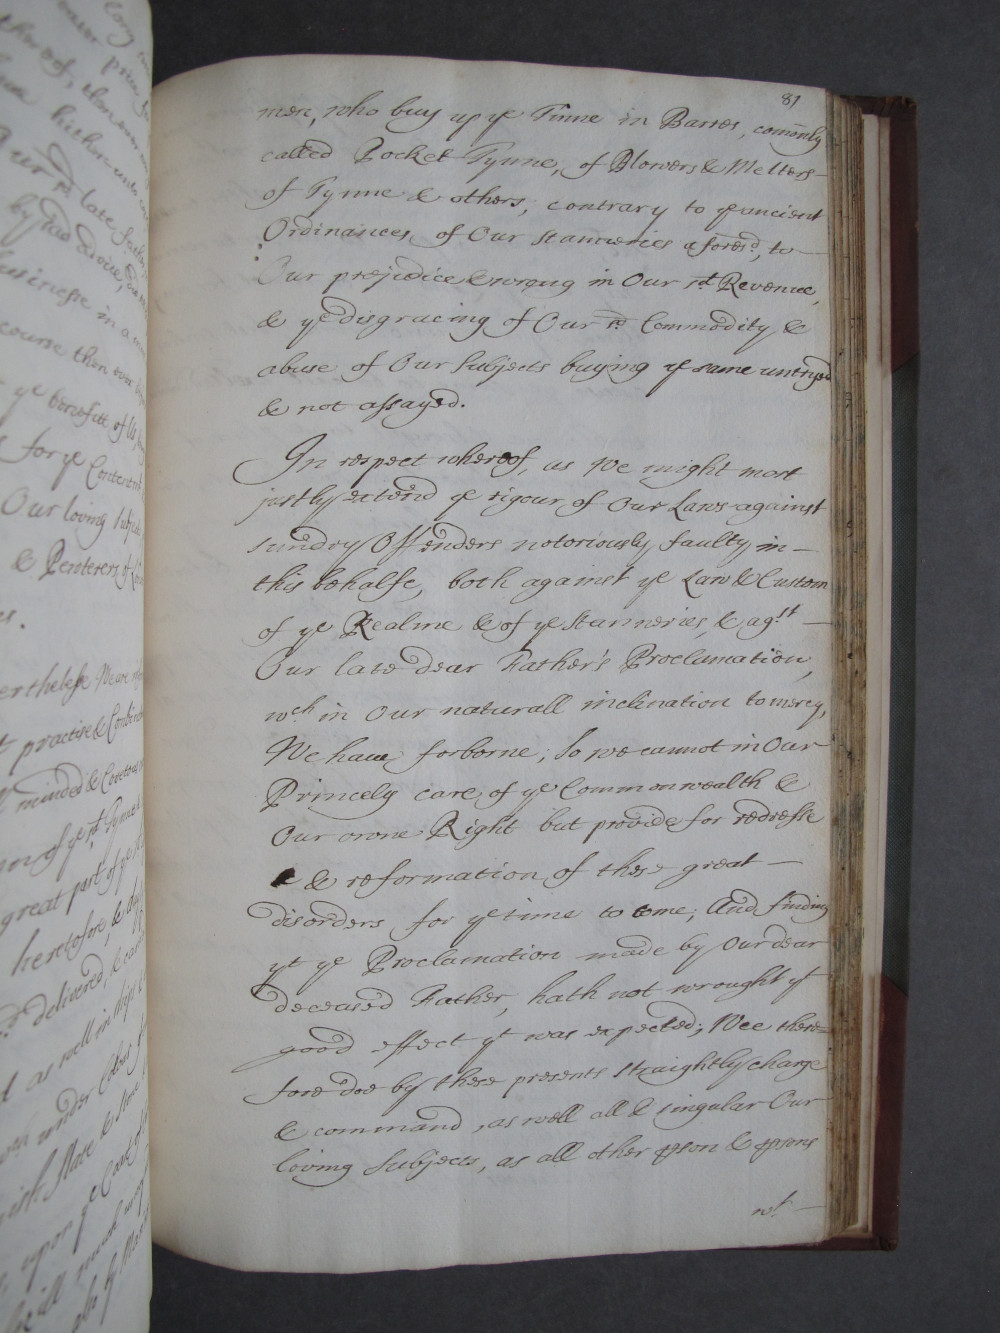 81
men, who buy up ye Tinne in Barres, com̄only
called Pocket Tynne, of Blowers & Melters
of Tynne & others, contrary to ye ancient
Ordinances of Our Stanneries aforesd, to
Our prejudice & wrong in Our sd Revenue,
& ye disgracing of Our sd Commodity &
abuse of Our Subjects buying ye same untryed
& not assayed.
In respect whereof, as We might most
justly extend ye rigour of Our Laws against
sundry Offenders notoriously faulty in
this behalfe, both against ye Law & Custom
of ye Realme & of ye Stanneries, & agst
Our late dear Father's Proclamation,
wch in Our naturall inclination to mercy,
We have forborne; So we cannot in Our
Princely care of ye Common wealth &
Our owne Right but provide for redresse
& reformation of these great
disorders for ye time to come; And finding
yt ye Proclamation made by Our dear
deceased Father, hath not wrought yt
good effect yt was expected; Wee there=
fore doe by these presents straightly charge
& command, as well all & singular Our
loving Subjects, as all other ꝑson & ꝑsons
wt
late
by
business in a
course then
ye benefitt of Us
for ye Content
Our loving Subjects
& Pewterers of
nevertheless We are
practise & Combin
minded & Covetous
of ye sd Tynne
great part of ye
heretofore, &
delivered, &
as well in ships
under Colour
upon ye Coast of